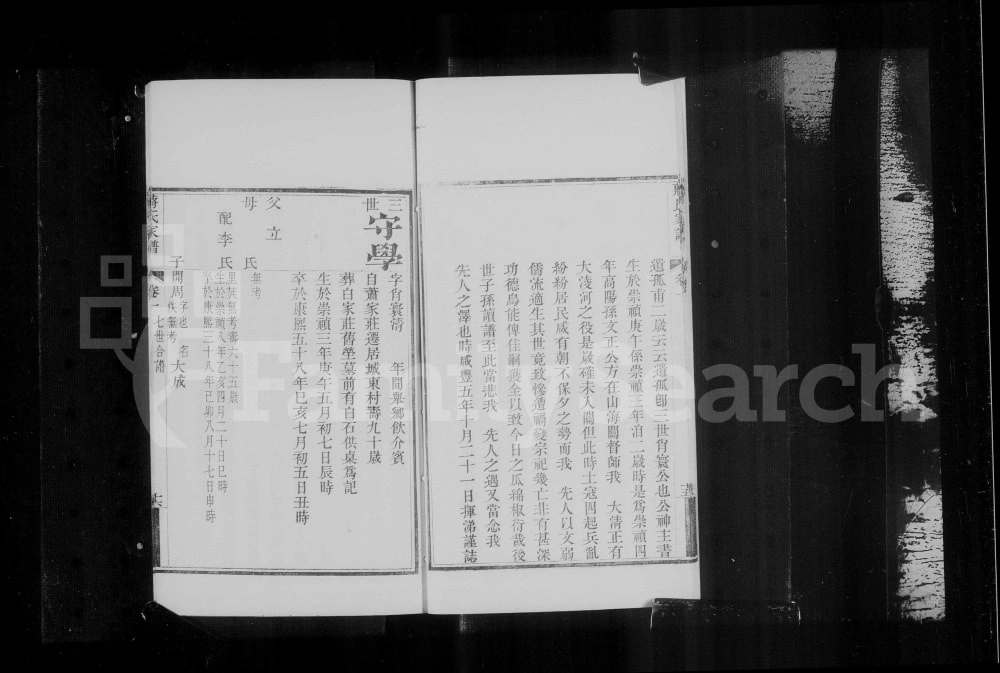 遺孤甫二歲云云遺孤卽三世肖寰公也公神主書
生於崇禎庚午係崇禎三年洎二歲時是爲崇禎四
年高陽孫文正公方在山海關督師我 大清正有
大凌河之役是歲確未入關但此時土寇四起兵亂
紛紛居民咸有朝不保夕之勢而我 先人以文弱
儒流適生其世竟致慘遭禍變宗祀幾亡非有甚深
功德烏能俾佳嗣獲全以致今日之瓜綿椒衍哉後
世子孫頌譜至此當悲我 先人之遇又當念我
先人之澤也時咸豐五年十月二十一日揮涕謹誌
三世
守學
字肖寰清 年間舉鄉飲介賓
自蕭家莊遷居城東村壽九十歲
葬白家莊舊塋墓前有白石供桌爲記
生於崇禎三年庚午五月初七日辰時
卒於康熙五十八年己亥七月初五日丑時
父立
母 氏
無考
配李氏
里居無考壽六十五歲
生於崇禎八年乙亥四月二十日巳時
卒於康熙三十八年己卯八月十七日申時
子開周
大成
蔣氏家譜 卷一 七世合譜
FamilySearch